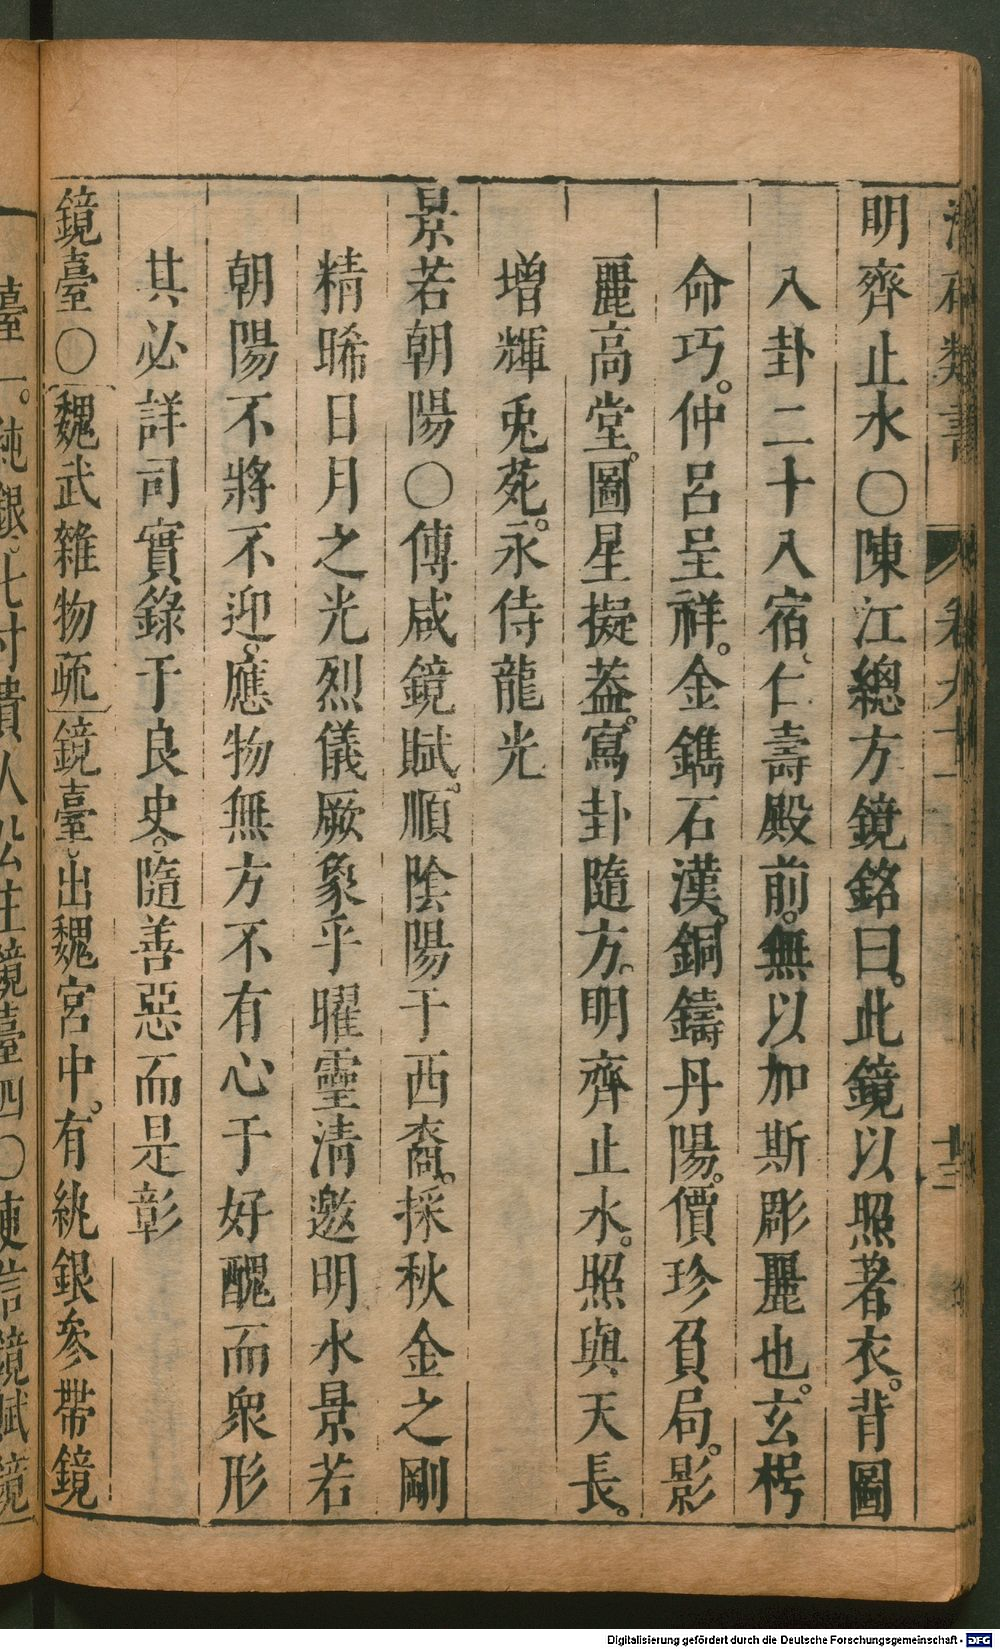 明齊止水○陳江總方鏡銘曰。此鏡以照著衣。背圖
八卦二十八宿、仁壽殿前。無以加斯彫麗也。玄枵
命巧。仲呂呈祥。金鐫石漢。銅鑄丹陽。價珍負局。影
麗高堂。圖星擬蓋。寫卦隨方。明齊止水。照與天長。
增輝兎苑。永侍龍光
景若朝陽○傅咸鏡賦。順陰陽于西裔。採秋金之剛
精晞日月之光烈儀厥象乎曜靈清邀明水景若
朝陽不將不迎、應物無方不有心于好醜而衆形
其必詳司實錄于良史。隨善惡而是彰
鏡臺○魏武雜物疏鏡臺。出魏宮中。有純銀參帶鏡
臺一。純銀七寸貴人公主鏡臺四○庾信鏡賦鏡
類書
卷九十一
十三
Digitalisierung gefördert durch die Deutsche Forschungsgemeinschaft - DFG